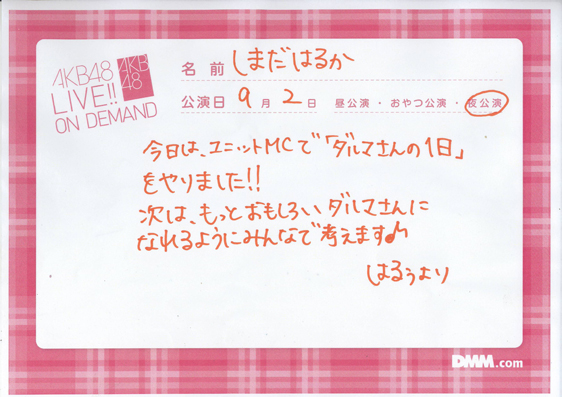 AKB48
LIVE!!
ON DEMAND
AKB
48
名前 しまだはるか
公演日 9月2日 昼公演・おやつ公演・夜公演
今日は、ユニットMCで「ダルマさんの1日」
をやりました!!
次は、もっとおもしろいダルマさんに
なれるようにみんなで考えます♪
はるぅより
DMM.com